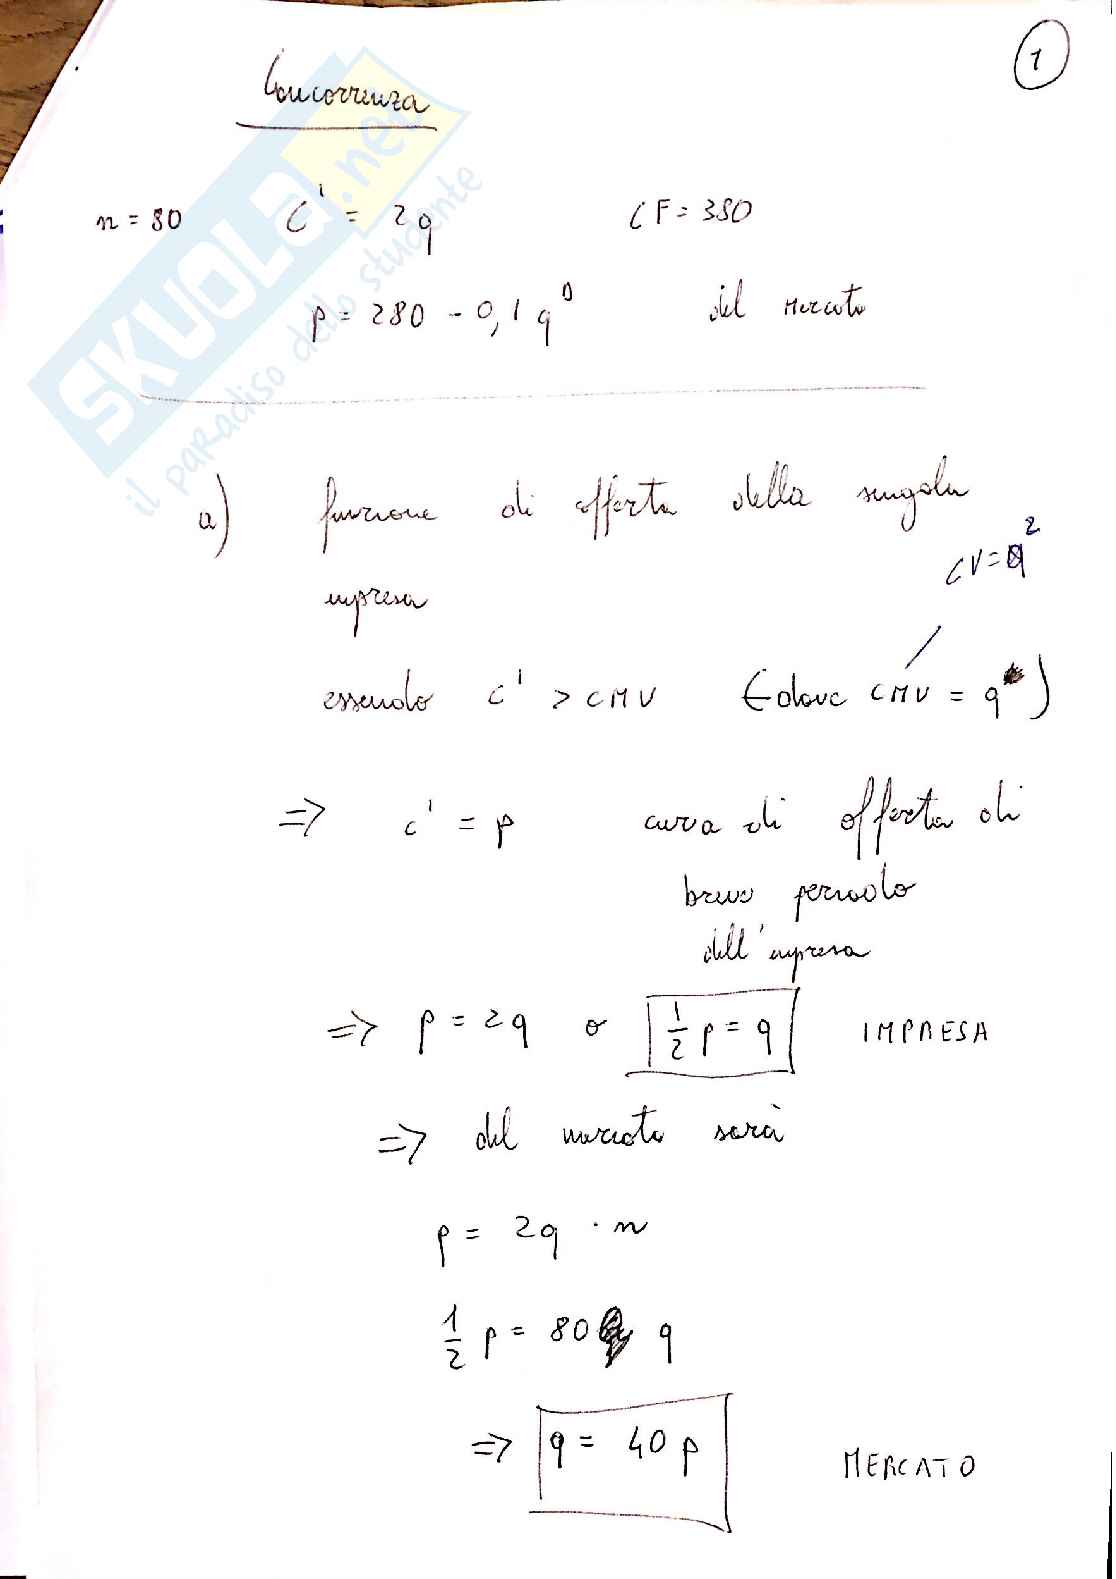 1
Concorrenza
n = 80 C' = 2q CF = 380
p = 280 - 0,1 q^D del Mercato
a) funzione di offerta della singola
impresa
CV = q^2
essendo c' > CMV (dove CMV = q)
=> c' = p curva di offerta di
breve periodo
dell'impresa
=> p = 2q o 1/2 p = q IMPRESA
=> del mercato sarà
p = 2q · n
1/2 p = 80 q
=> q = 40 p MERCATO
SKUOLA.net
il paradiso dello studente